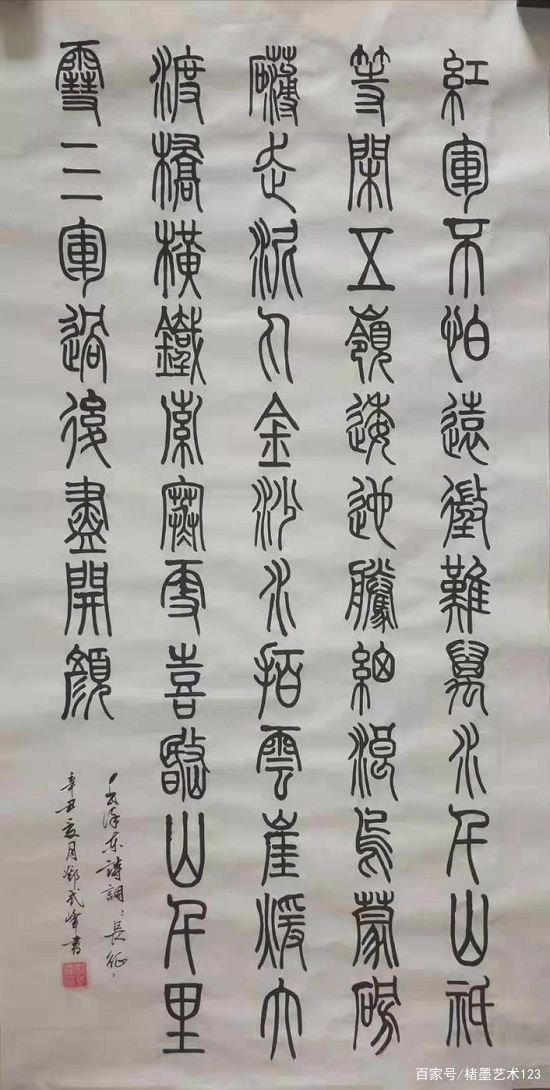 紅軍不怕遠徵難萬水千山祇
等閑五嶺逶迤騰細浪烏蒙磅
礴走泥丸金沙水拍雲崖暖大
渡橋橫鐵索寒更喜岷山千里
雪三軍過後盡開顏
毛泽东詩詞長征
辛丑夏月武峰書
百家号/楮墨艺术123